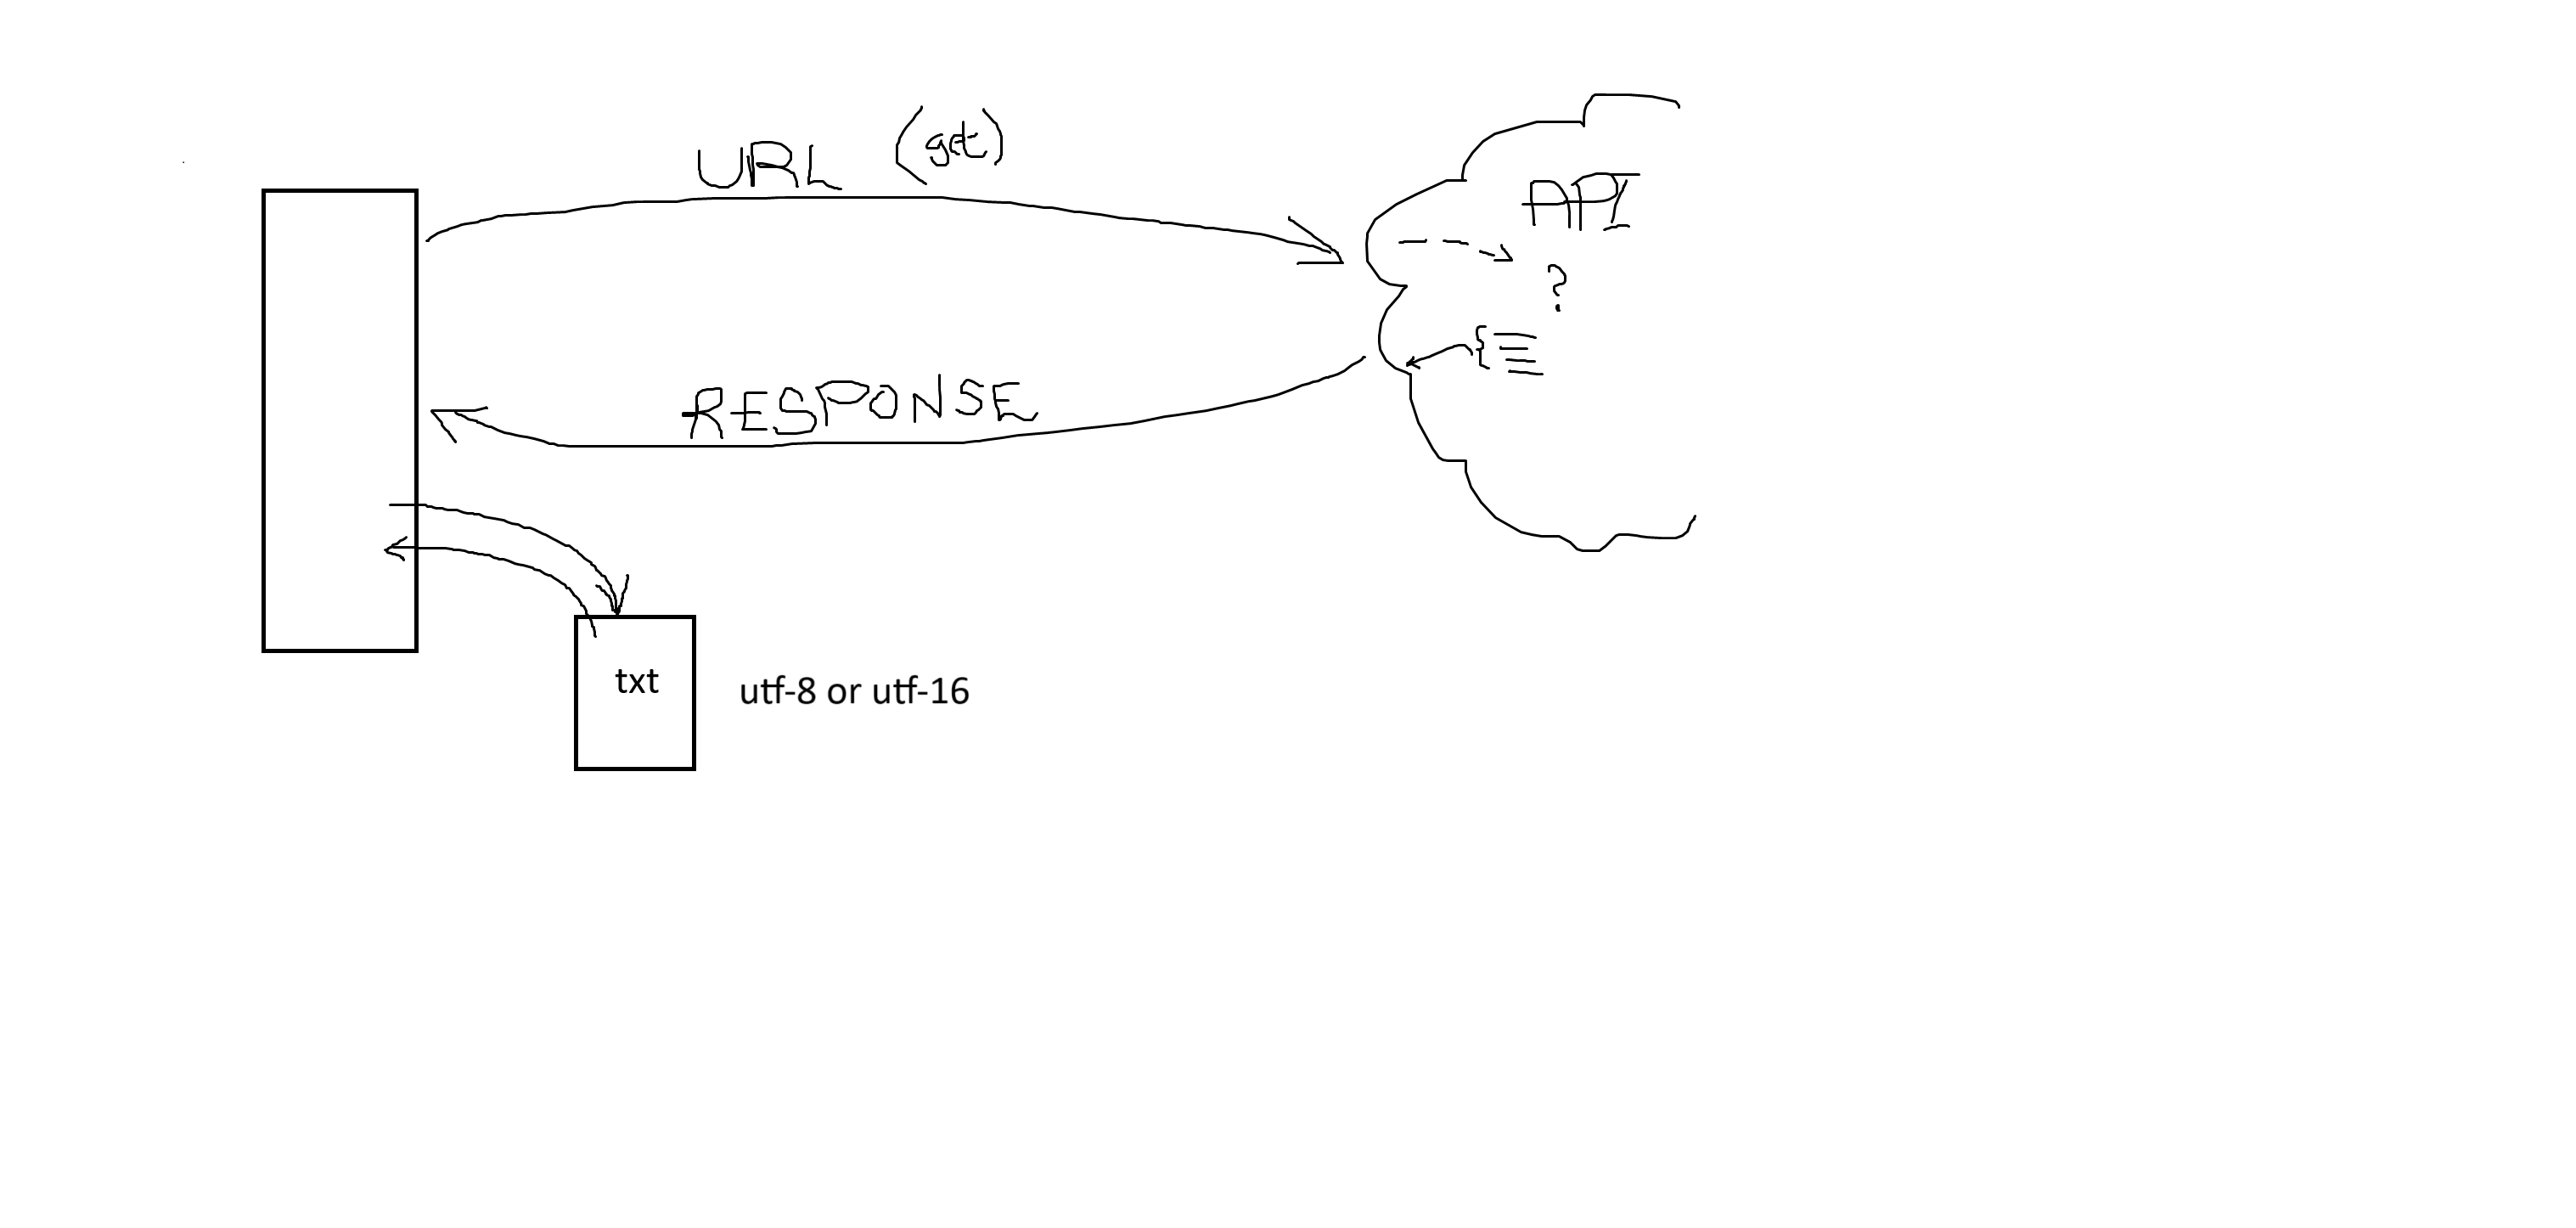 URL (get)
API
?
{
RESPONSE
txt
utf-8 or utf-16